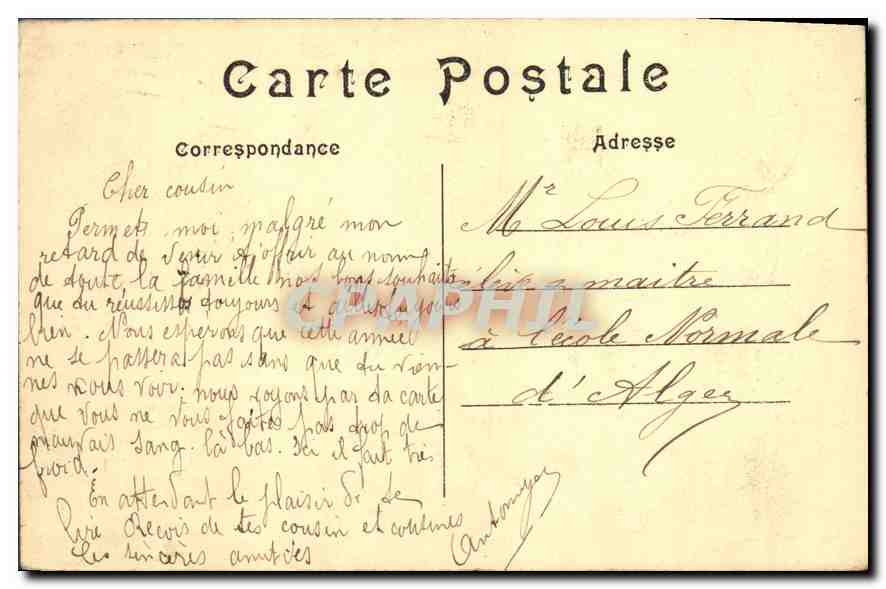 Carte Postale
Correspondance
Adresse
Cher cousin
Permets moi malgré mon
retard de venir t'offrir au nom
de toute la famille nos bons souhaits
que tu réussisse toujours et
bien. Nous esperons que cette année
ne se passera pas sans que tu vien-
nes nous voir. nous voyons par ta carte
que vous ne vous faites pas trop de
mauvais sang là bas. Ici il fait très
froid.
En attendant le plaisir de te
lire Reçois de tes cousin et cousines
les sincères amitiés
Mr Louis Ferrand
élève maitre
à l'école Normale
d'Alger
CPAPHIL